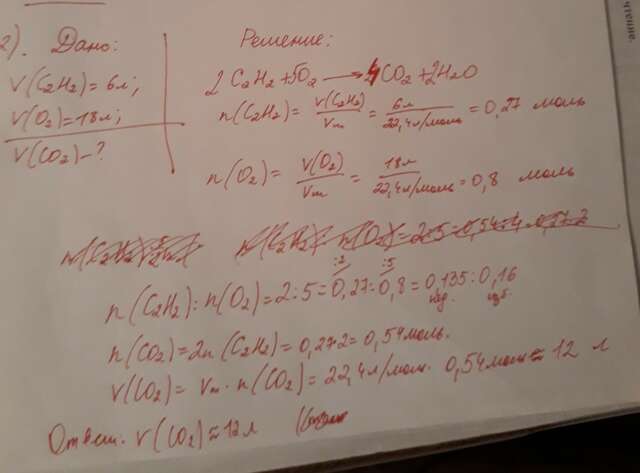 2). Дано:
V(C2H2)=6л;
V(O2)=18л;
V(CO2)-?
Решение:
2C2H2+5O2 → 4CO2+2H2O
n(C2H2)= V(C2H2)/Vm = 6л/22,4л/моль = 0,27 моль
n(O2)= V(O2)/Vm = 18л/22,4л/моль = 0,8 моль
:2 :5
n(C2H2):n(O2)=2:5=0,27:0,8=0,135:0,16
нед. изб.
n(CO2)=2n(C2H2)=0,27·2=0,54моль.
V(CO2)=Vm·n(CO2)=22,4л/моль·0,54моль≈12 л
Ответ. V(CO2)≈12л
чтение